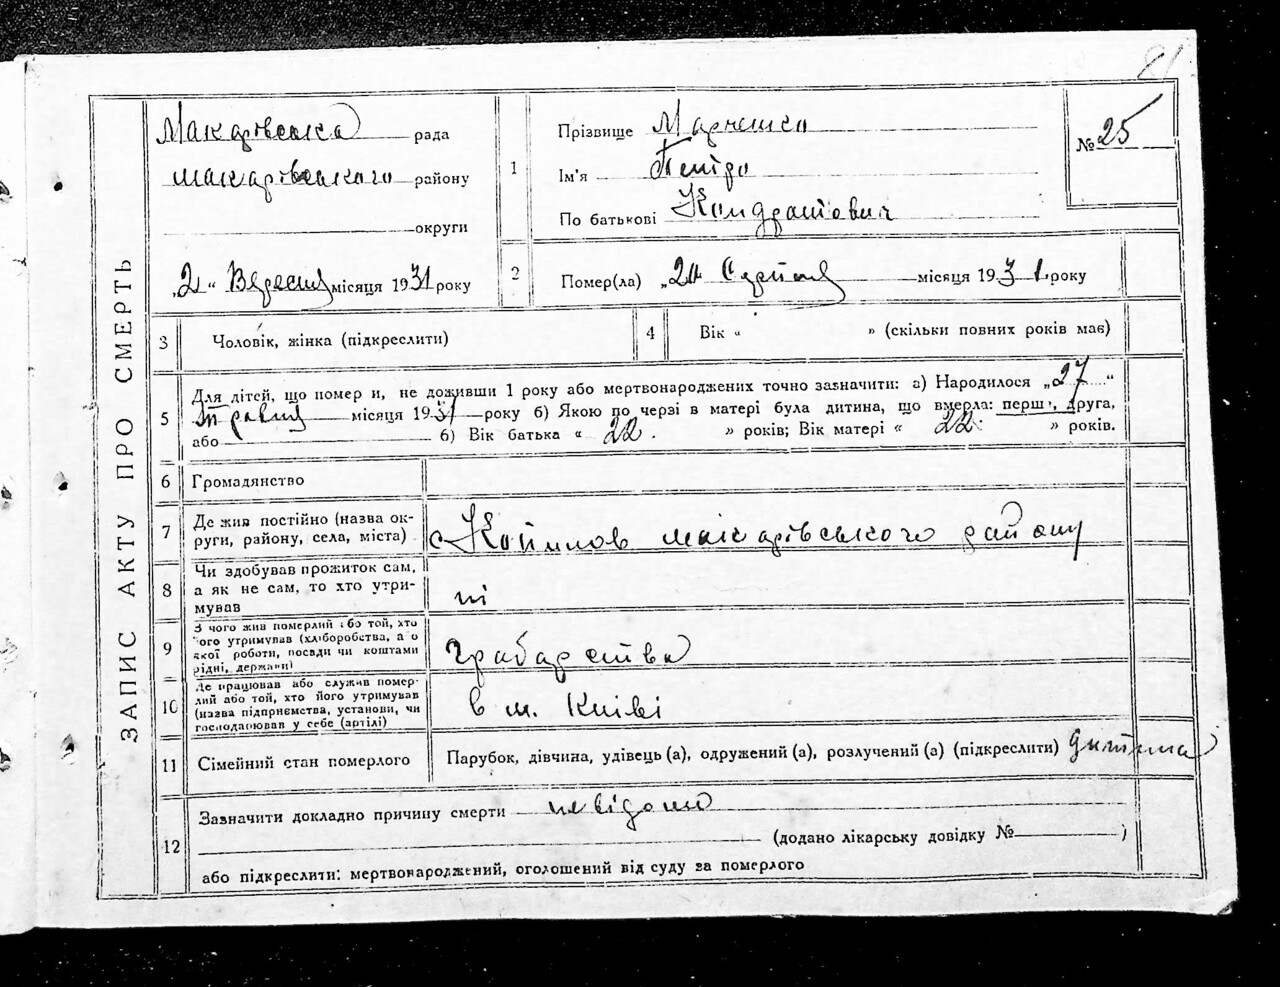 81
Макарівська рада
макарівського району
округи
„2“ Вересня місяця 1931 року
ЗАПИС АКТУ ПРО СМЕРТЬ
1
Прізвище Марченко
Ім'я Петро
По батькові Кондратович
№ 25
2
Помер(ла) „24 Серпня місяця 1931 року
3
Чоловік, жінка (підкреслити)
4
Вік « » (скільки повних років має)
5
Для дітей, що помер и, не доживши 1 року або мертвонароджених точно зазначити: а) Народилося „27“
травня місяця 1931 року б) Якою по черзі в матері була дитина, що вмерла: перша, друга,
або б) Вік батька « 22. » років; Вік матері « 22. » років.
6
Громадянство
7
Де жив постійно (назва ок-
руги, району, села, міста)
с Копилов макарівського району
8
Чи здобував прожиток сам,
а як не сам, то хто утри-
мував
ні
9
З чого жив померлий або той, хто
його утримував (хліборобства, а о
якої роботи, посади чи коштами
рідні, держави)
Грабарства
10
Де працював або служив помер-
лий або той, хто його утримував
(назва підприємства, установи, чи
господарював у себе (артілі)
в м. Київі
11
Сімейний стан померлого
Парубок, дівчина, удівець (а), одружений (а), розлучений (а) (підкреслити) дитина
12
Зазначити докладно причину смерти невідомо
(додано лікарську довідку № )
або підкреслити: мертвонароджений, оголошений від суду за померлого